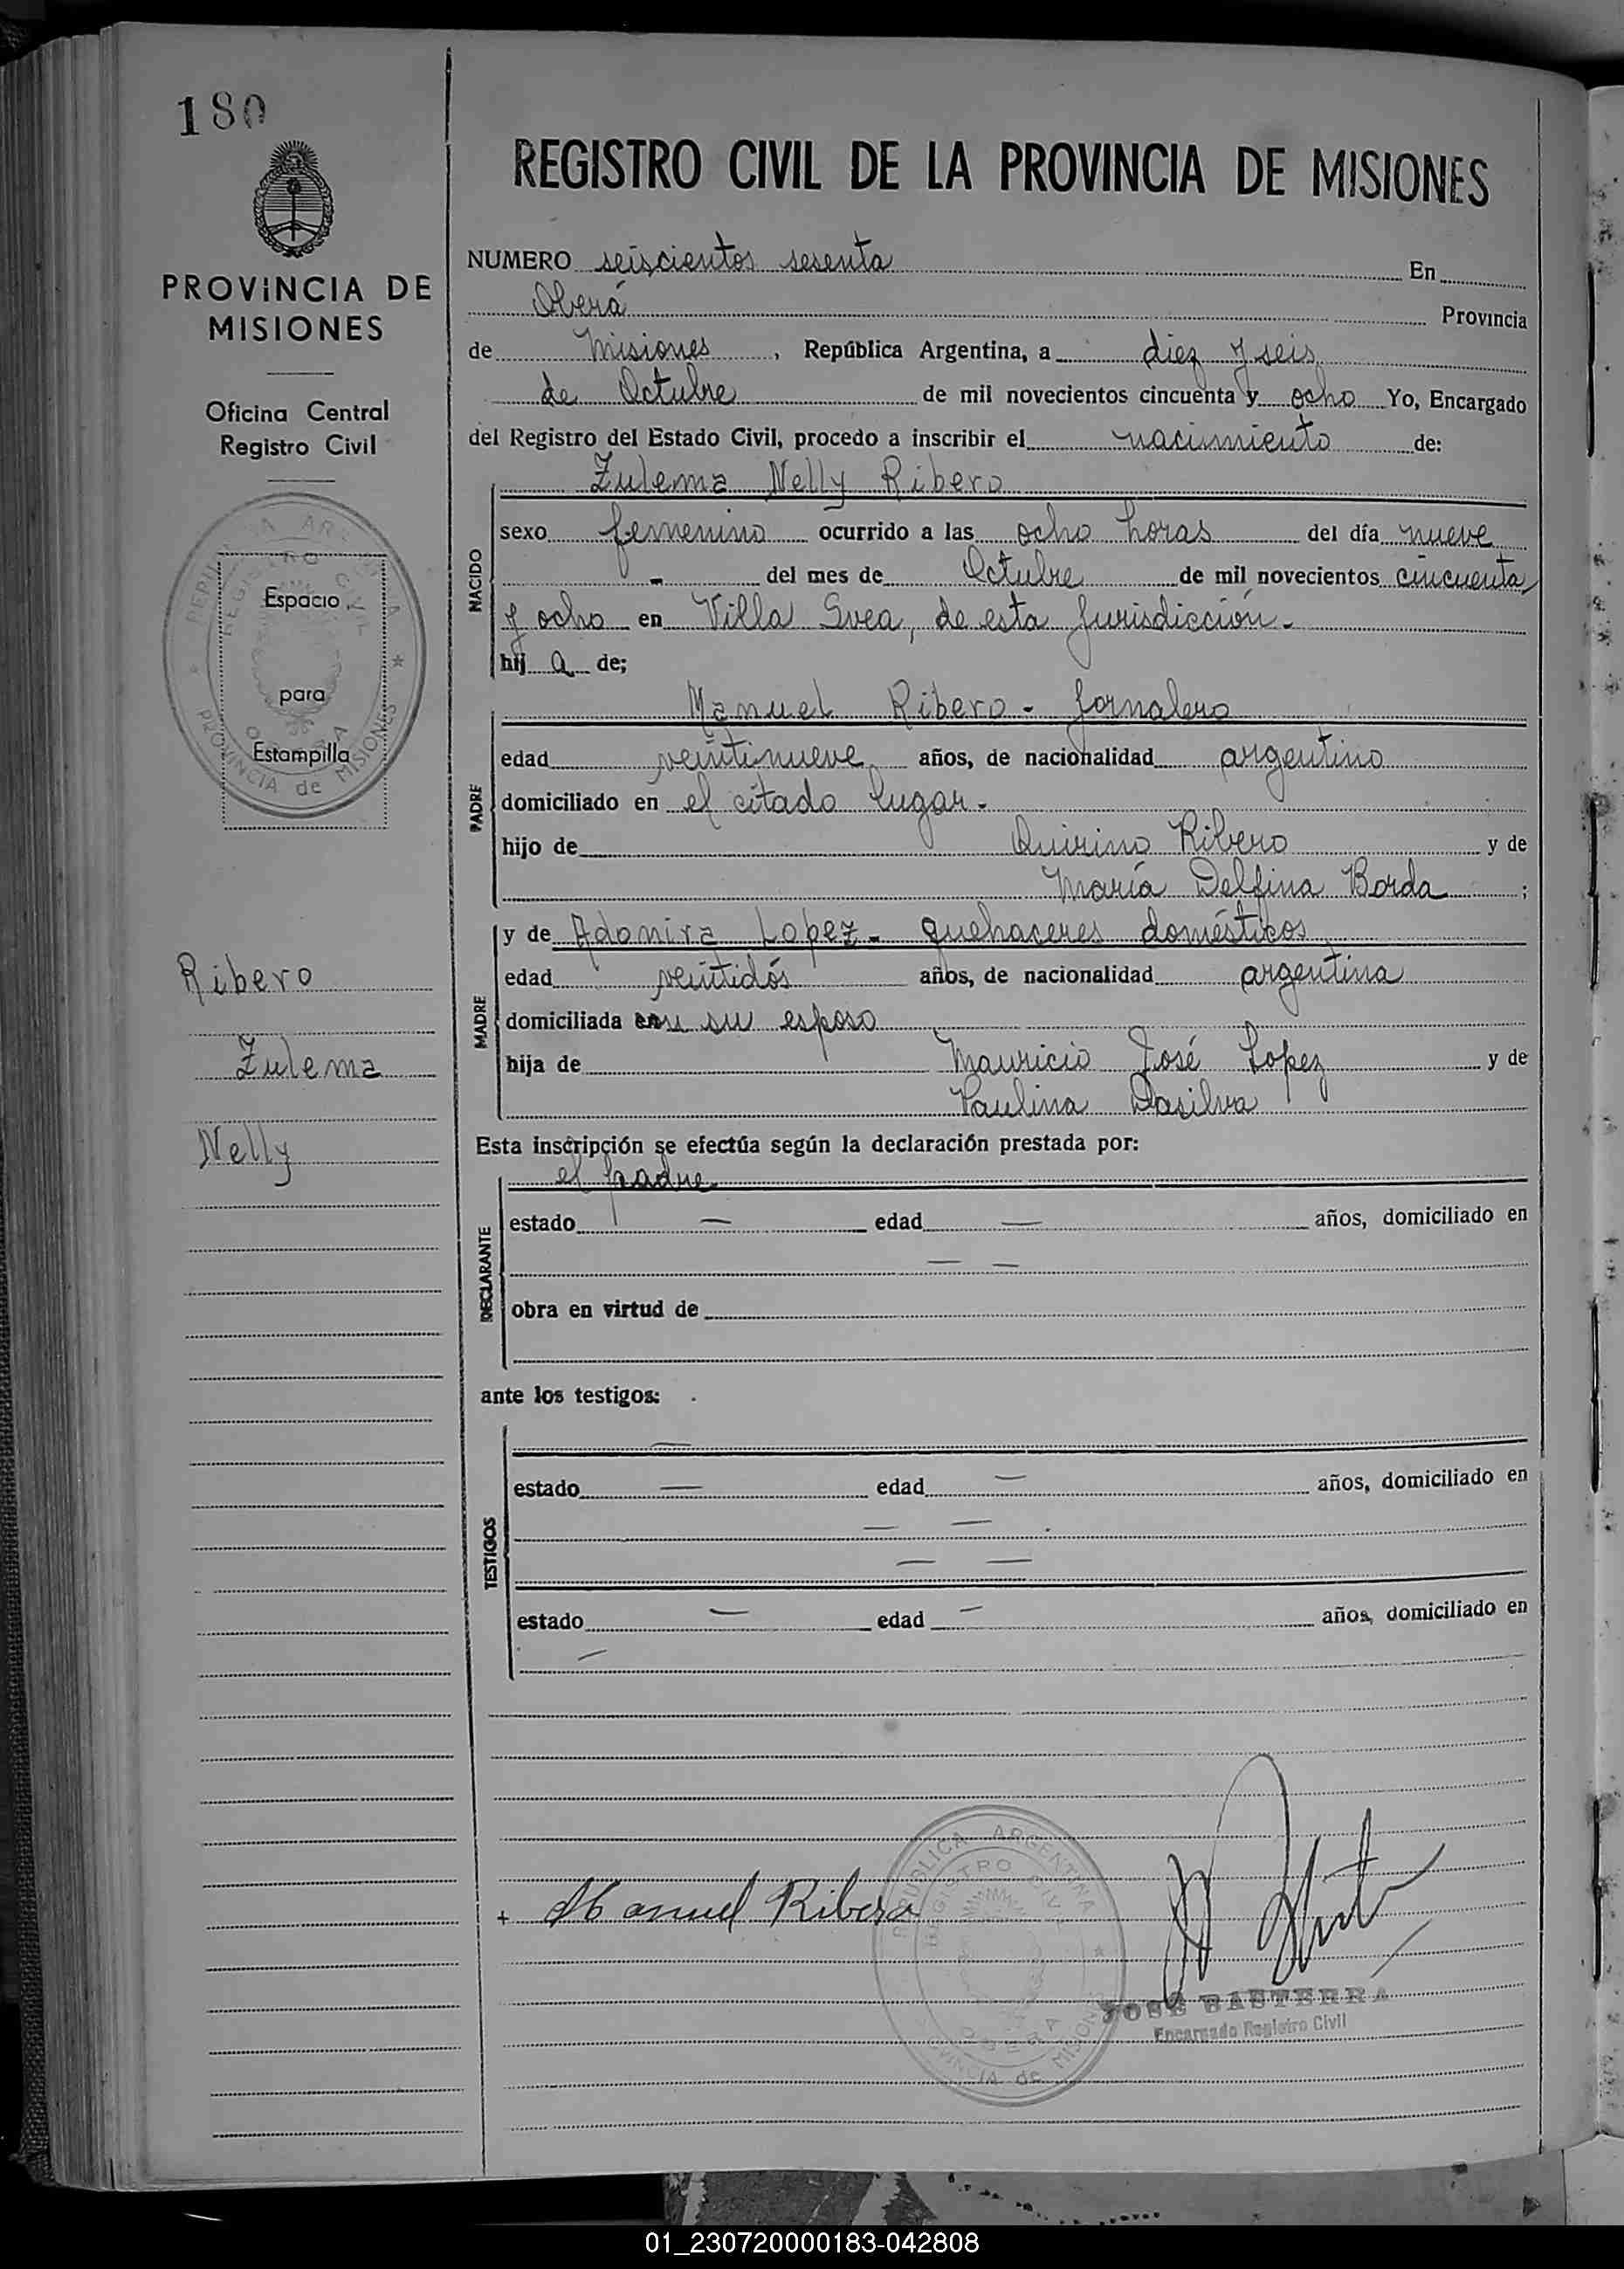 180
PROVINCIA DE
MISIONES
Oficina Central
Registro Civil
REPUBLICA ARGENTINA
REGISTRO CIVIL
OBERA
PROVINCIA de MISIONES
Espacio
para
Estampilla
Ribero
Zulema
Nelly
REGISTRO CIVIL DE LA PROVINCIA DE MISIONES
NUMERO seiscientos sesenta En
Oberá Provincia
de Misiones, República Argentina, a diez y seis
de Octubre de mil novecientos cincuenta y ocho Yo, Encargado
del Registro del Estado Civil, procedo a inscribir el nacimiento de:
Zulema Nelly Ribero
NACIDO
sexo femenino ocurrido a las ocho horas del día nueve
- del mes de Octubre de mil novecientos cincuenta
y ocho en Villa Svea, de esta Jurisdicción.-
hij a de;
PADRE
Manuel Ribero - Jornalero
edad veintinueve años, de nacionalidad argentino
domiciliado en el citado lugar.-
hijo de Quirino Ribero y de
María Delfina Borda ;
MADRE
y de Adomira Lopez - quehaceres domésticos
edad veintidós años, de nacionalidad argentina
domiciliada en su esposo
hija de Mauricio José Lopez y de
Paulina Dasilva
Esta inscripción se efectúa según la declaración prestada por:
el padre
DECLARANTE
estado — edad — años, domiciliado en
— —
obra en virtud de
ante los testigos:
TESTIGOS
—
estado — edad — años, domiciliado en
— —
— —
estado — edad — años, domiciliado en
—
+ Manuel Ribero
REPUBLICA ARGENTINA
REGISTRO CIVIL
OBERA
PROVINCIA de MISIONES
JOSE BASTERRA
Encargado Registro Civil
01_230720000183-042808